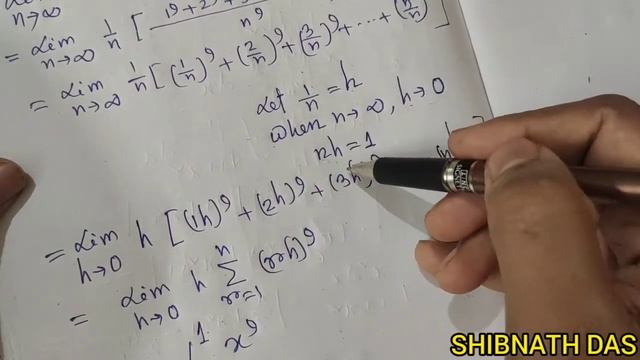 n→∞
= Lim n→∞ 1/n [ 1⁹ + 2⁹ + / n⁹
= Lim n→∞ 1/n [ (1/n)⁹ + (2/n)⁹ + (3/n)⁹ + ... + (n/n)⁹ ]
Let 1/n = h
when n→∞, h→0
nh = 1
= Lim h→0 h [ (1h)⁹ + (2h)⁹ + (3h)
= Lim h→0 h Σ r=1 n (rh)⁹
1 x⁹
SHIBNATH DAS